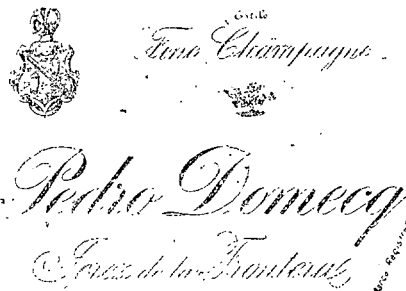 Estilo
Fino Champagne
Pedro Domecq
Jerez de la Frontera
Marca Registrada